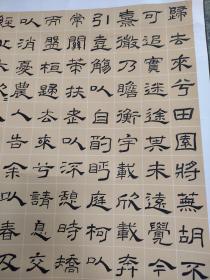 歸去來兮田園將蕪胡不
可追實迷途其未遠覺今
熹微乃瞻衡宇載欣載奔
引壺觴以自酌眄庭柯以
常關策扶老以流憩時矯
而盤桓歸去來兮請息交
以消憂農人告余以春及
經